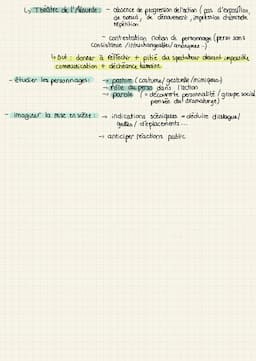 ↳ Théâtre de l'Absurde → absence de progression de l'action (pas d'exposition,
de nœud, de dénouement, impression d'éternelle
répétition
→ contestation notion de personnage (perso sans
consistance / interchangeables / anonymes...)
↳ But : donner à réfléchir + pitié du spectateur devant impossible
communication + déchéance humaine
- étudier les personnages : → posture (costume / gestuelle / mimiques)
→ rôle du perso dans l'action
→ parole (= découverte personnalité / groupe social
pensée du dramaturge)
- imaginer la mise en scène : → indications scéniques = déduire dialogue /
gestes / déplacements...
→ anticiper réactions public